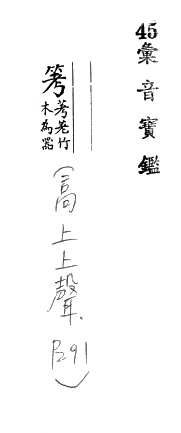 45彙音寶鑑
竹
木為器
(高上上聲. P291)